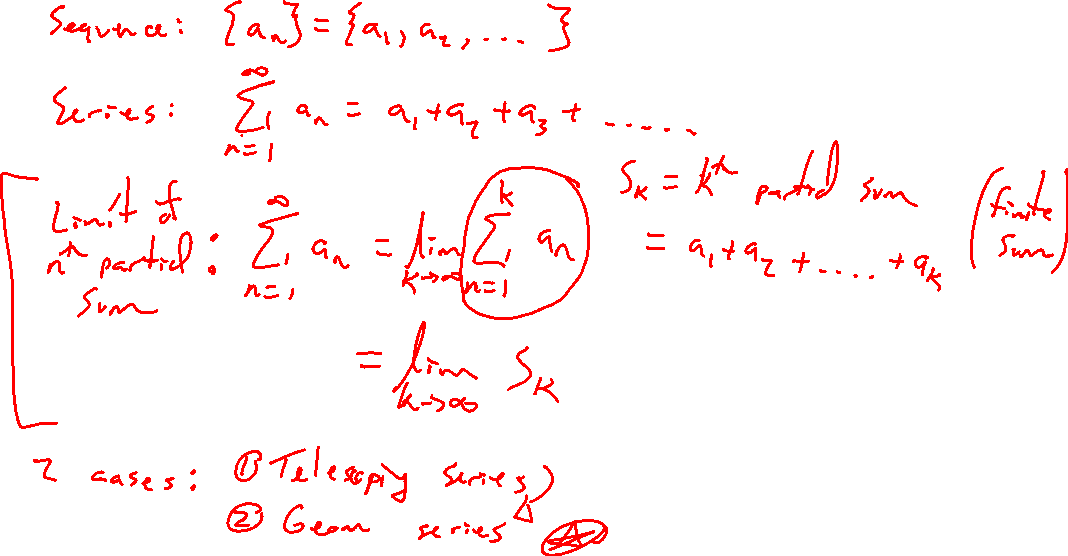 Sequence: {aₙ} = {a₁, a₂, ... }
Series: ∑_{n=1}^{∞} aₙ = a₁ + a₂ + a₃ + .....
Limit of nᵗʰ partial sum: ∑_{n=1}^{∞} aₙ = lim_{k→∞} ∑_{n=1}^{k} aₙ
S_k = kᵗʰ partial sum (finite sum)
= a₁ + a₂ + .... + a_k
= lim_{k→∞} S_k
2 cases: ① Telescopiy series
② Geom series